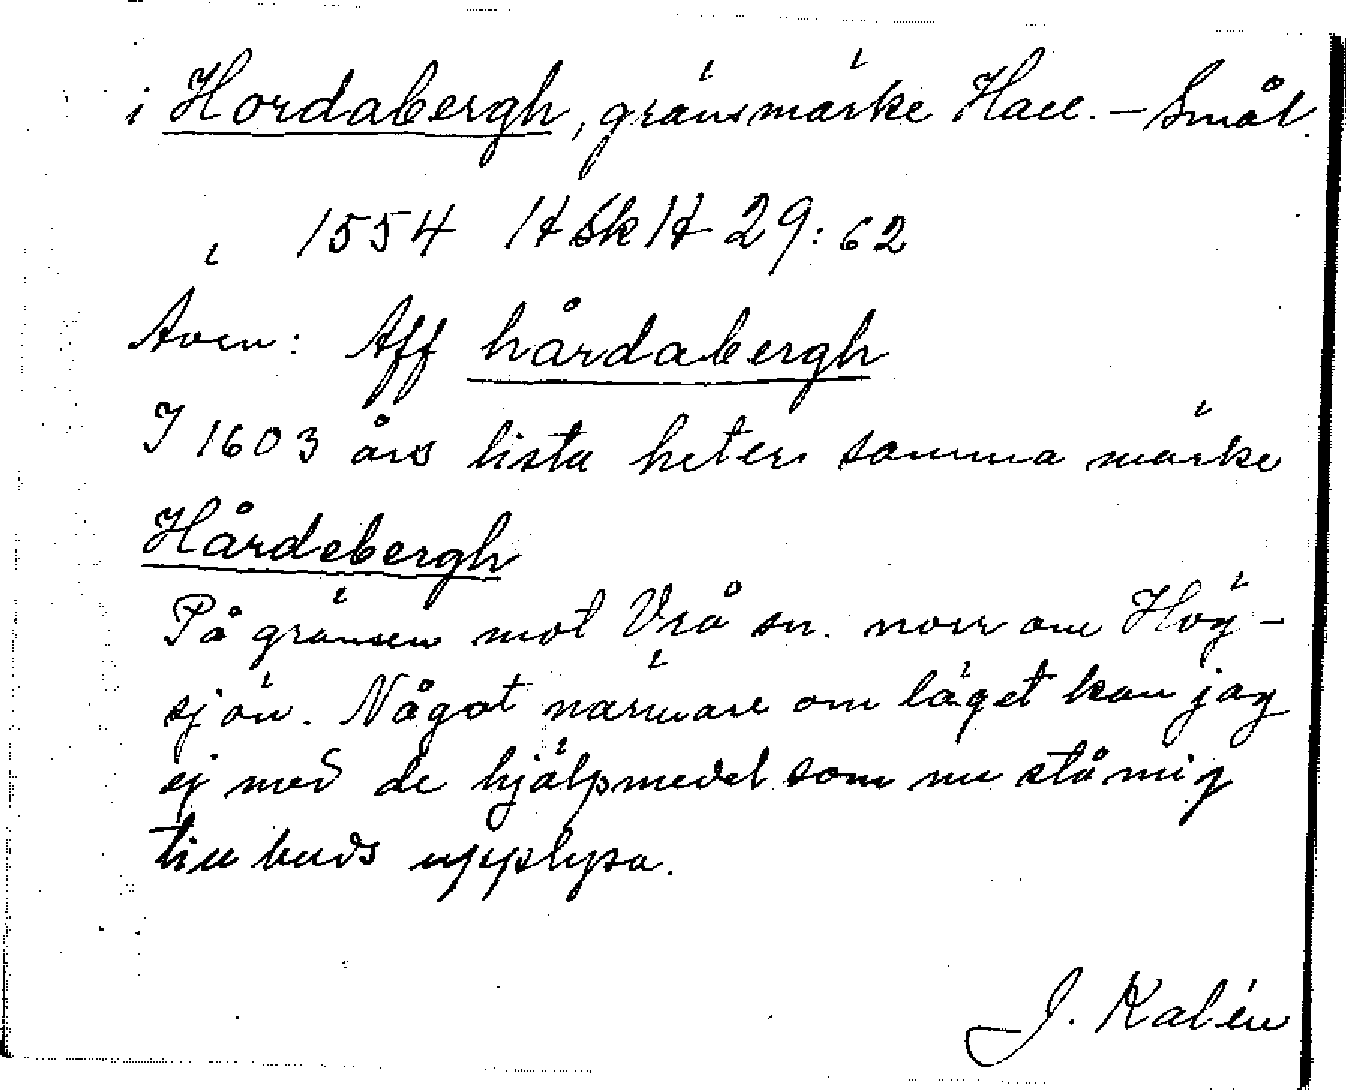 i Hordabergh, gränsmärke Hall. – Smål.
1554 HSkH 29:62
Även: Aff hårdabergh
I 1603 års lista heter samma märke
Hårdebergh
På gränsen mot Vrå sn. norr om Hög-
sjön. Något närmare om läget kan jag
ej med de hjälpmedel som nu stå mig
till buds upplysa.
J. Kalén